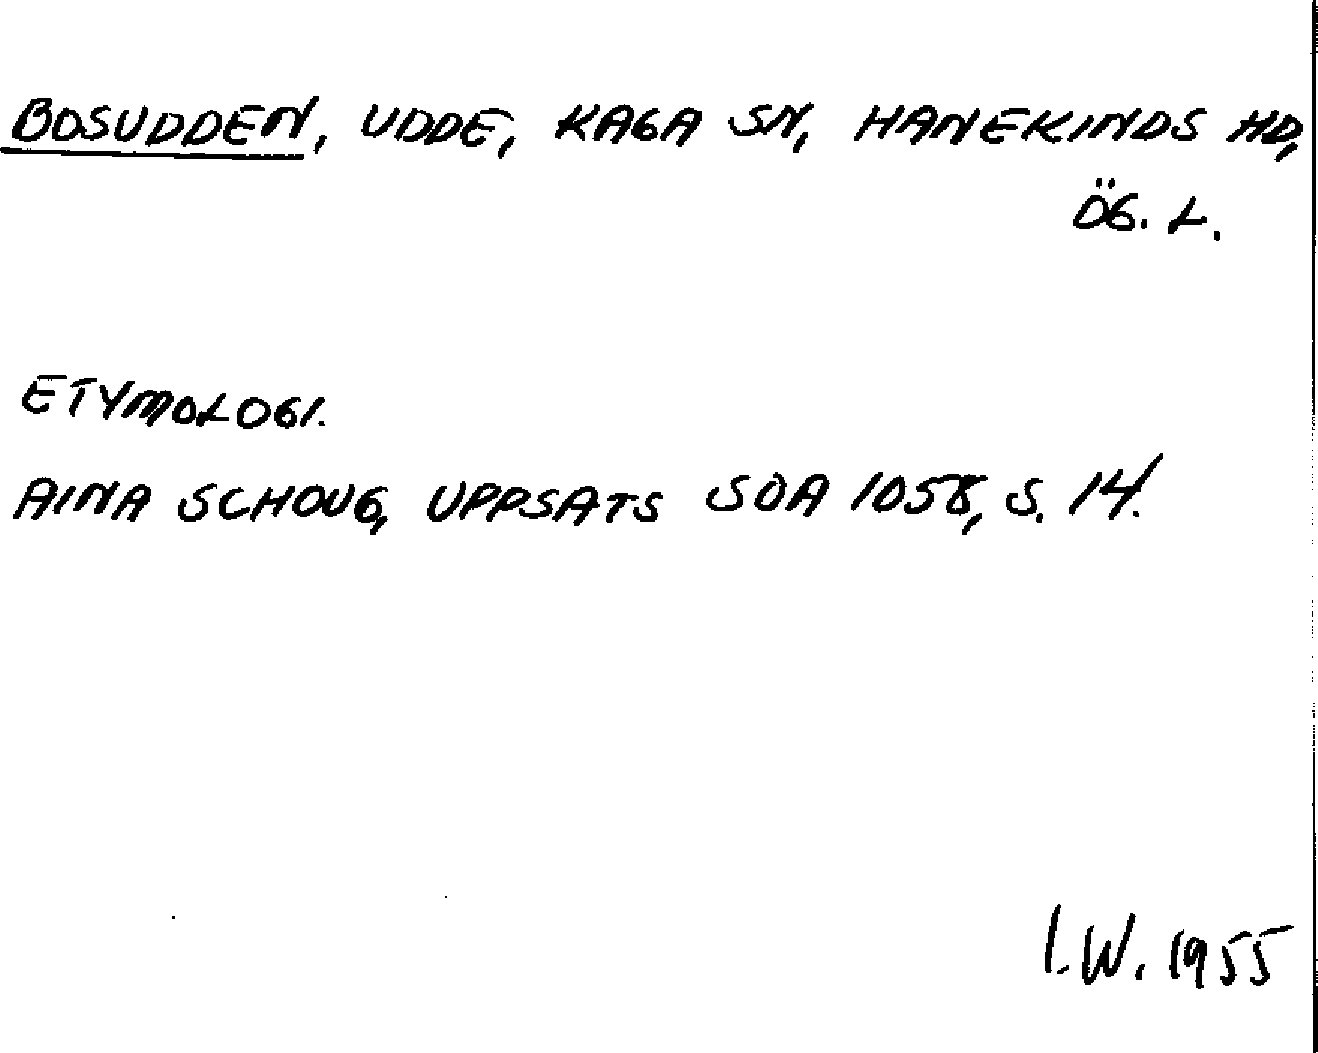 BOSUDDEN, UDDE, KAGA SN, HANEKINDS HD,
ÖG. L.
ETYMOLOGI.
AINA SCHOUG, UPPSATS SOA 1058, S. 14.
I.W. 1955